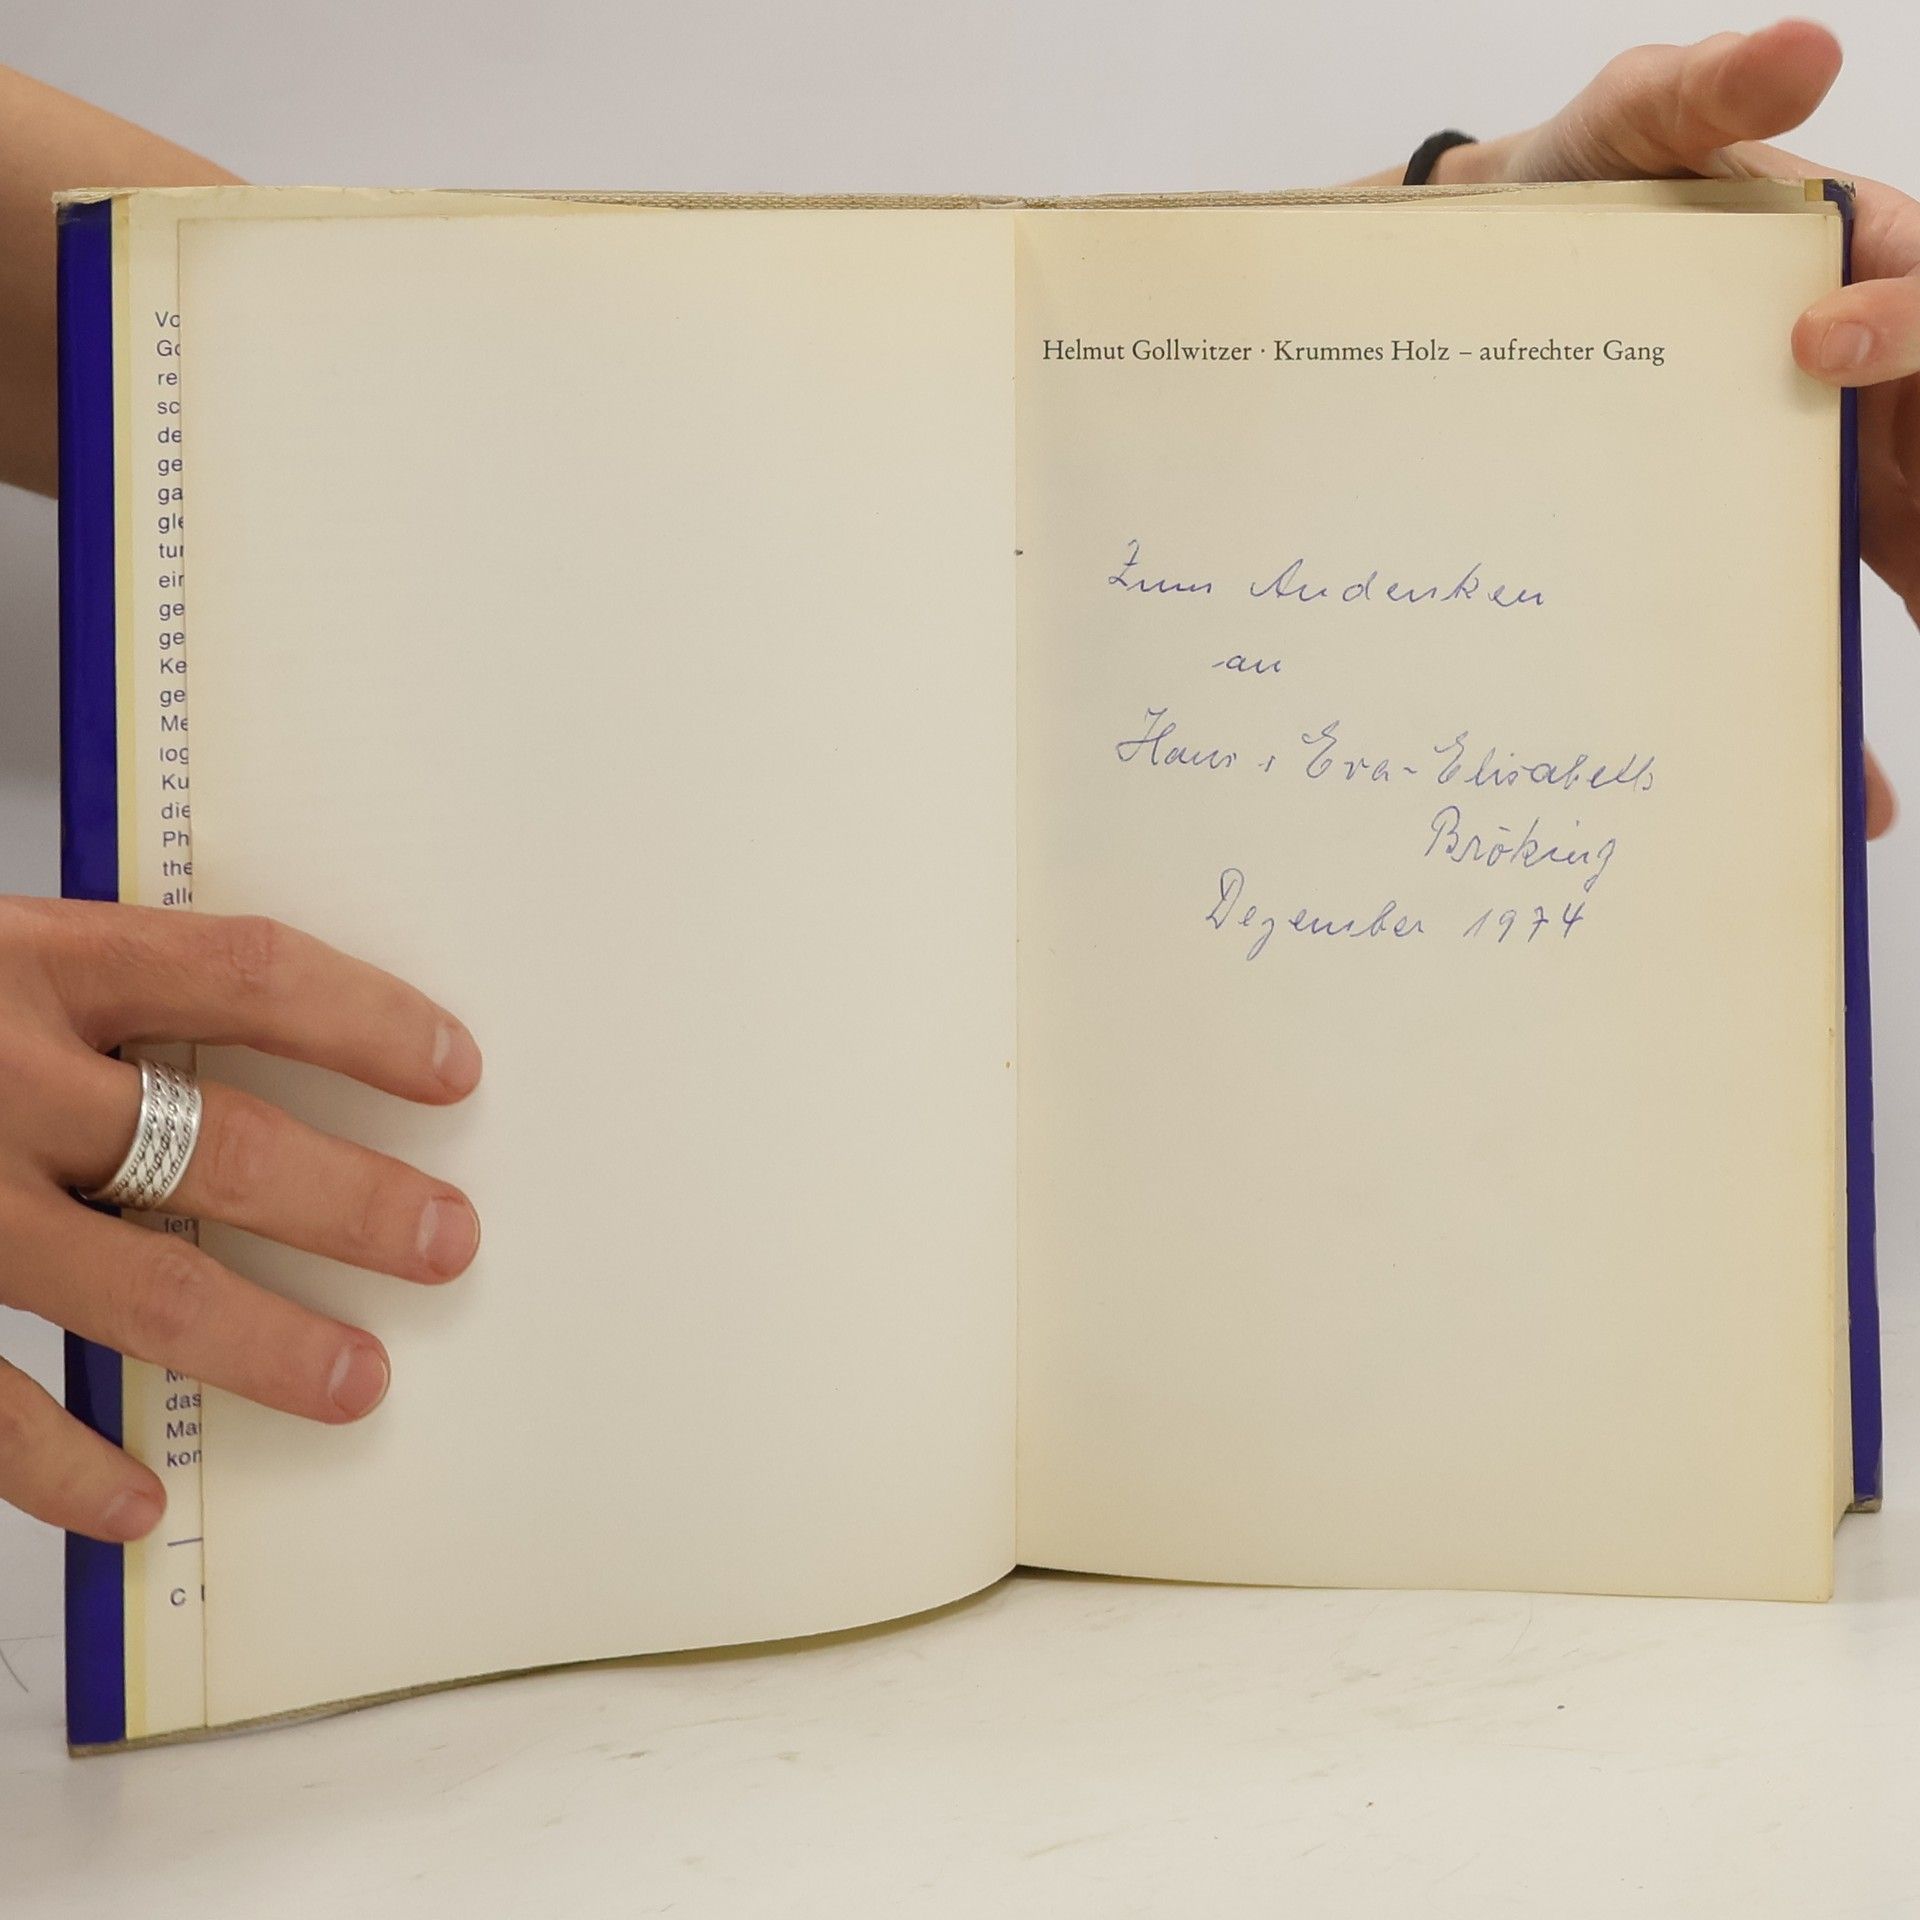 Vo
Go
re
sc
de
ge
ga
gle
tur
ein
ge
ge
Ke
ge
Me
log
Ku
die
Ph
the
alle
fen
das
Ma
kon
C
Helmut Gollwitzer · Krummes Holz – aufrechter Gang
Zum Andenken
an
Hans + Eva-Elisabeth
Bröking
Dezember 1974